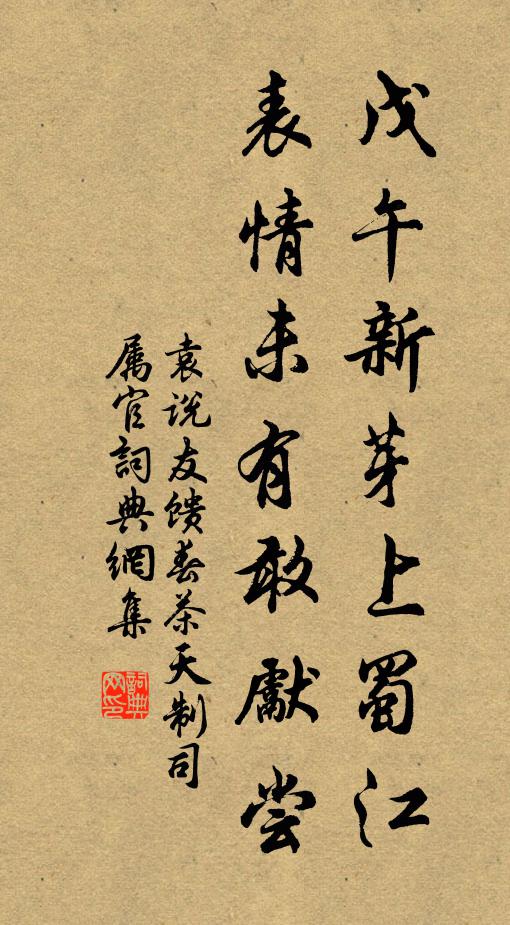 戊午新芽上蜀江
表情未有敢獻尝
袁说友馈春茶天制司
属官詞典網集
詞典网印